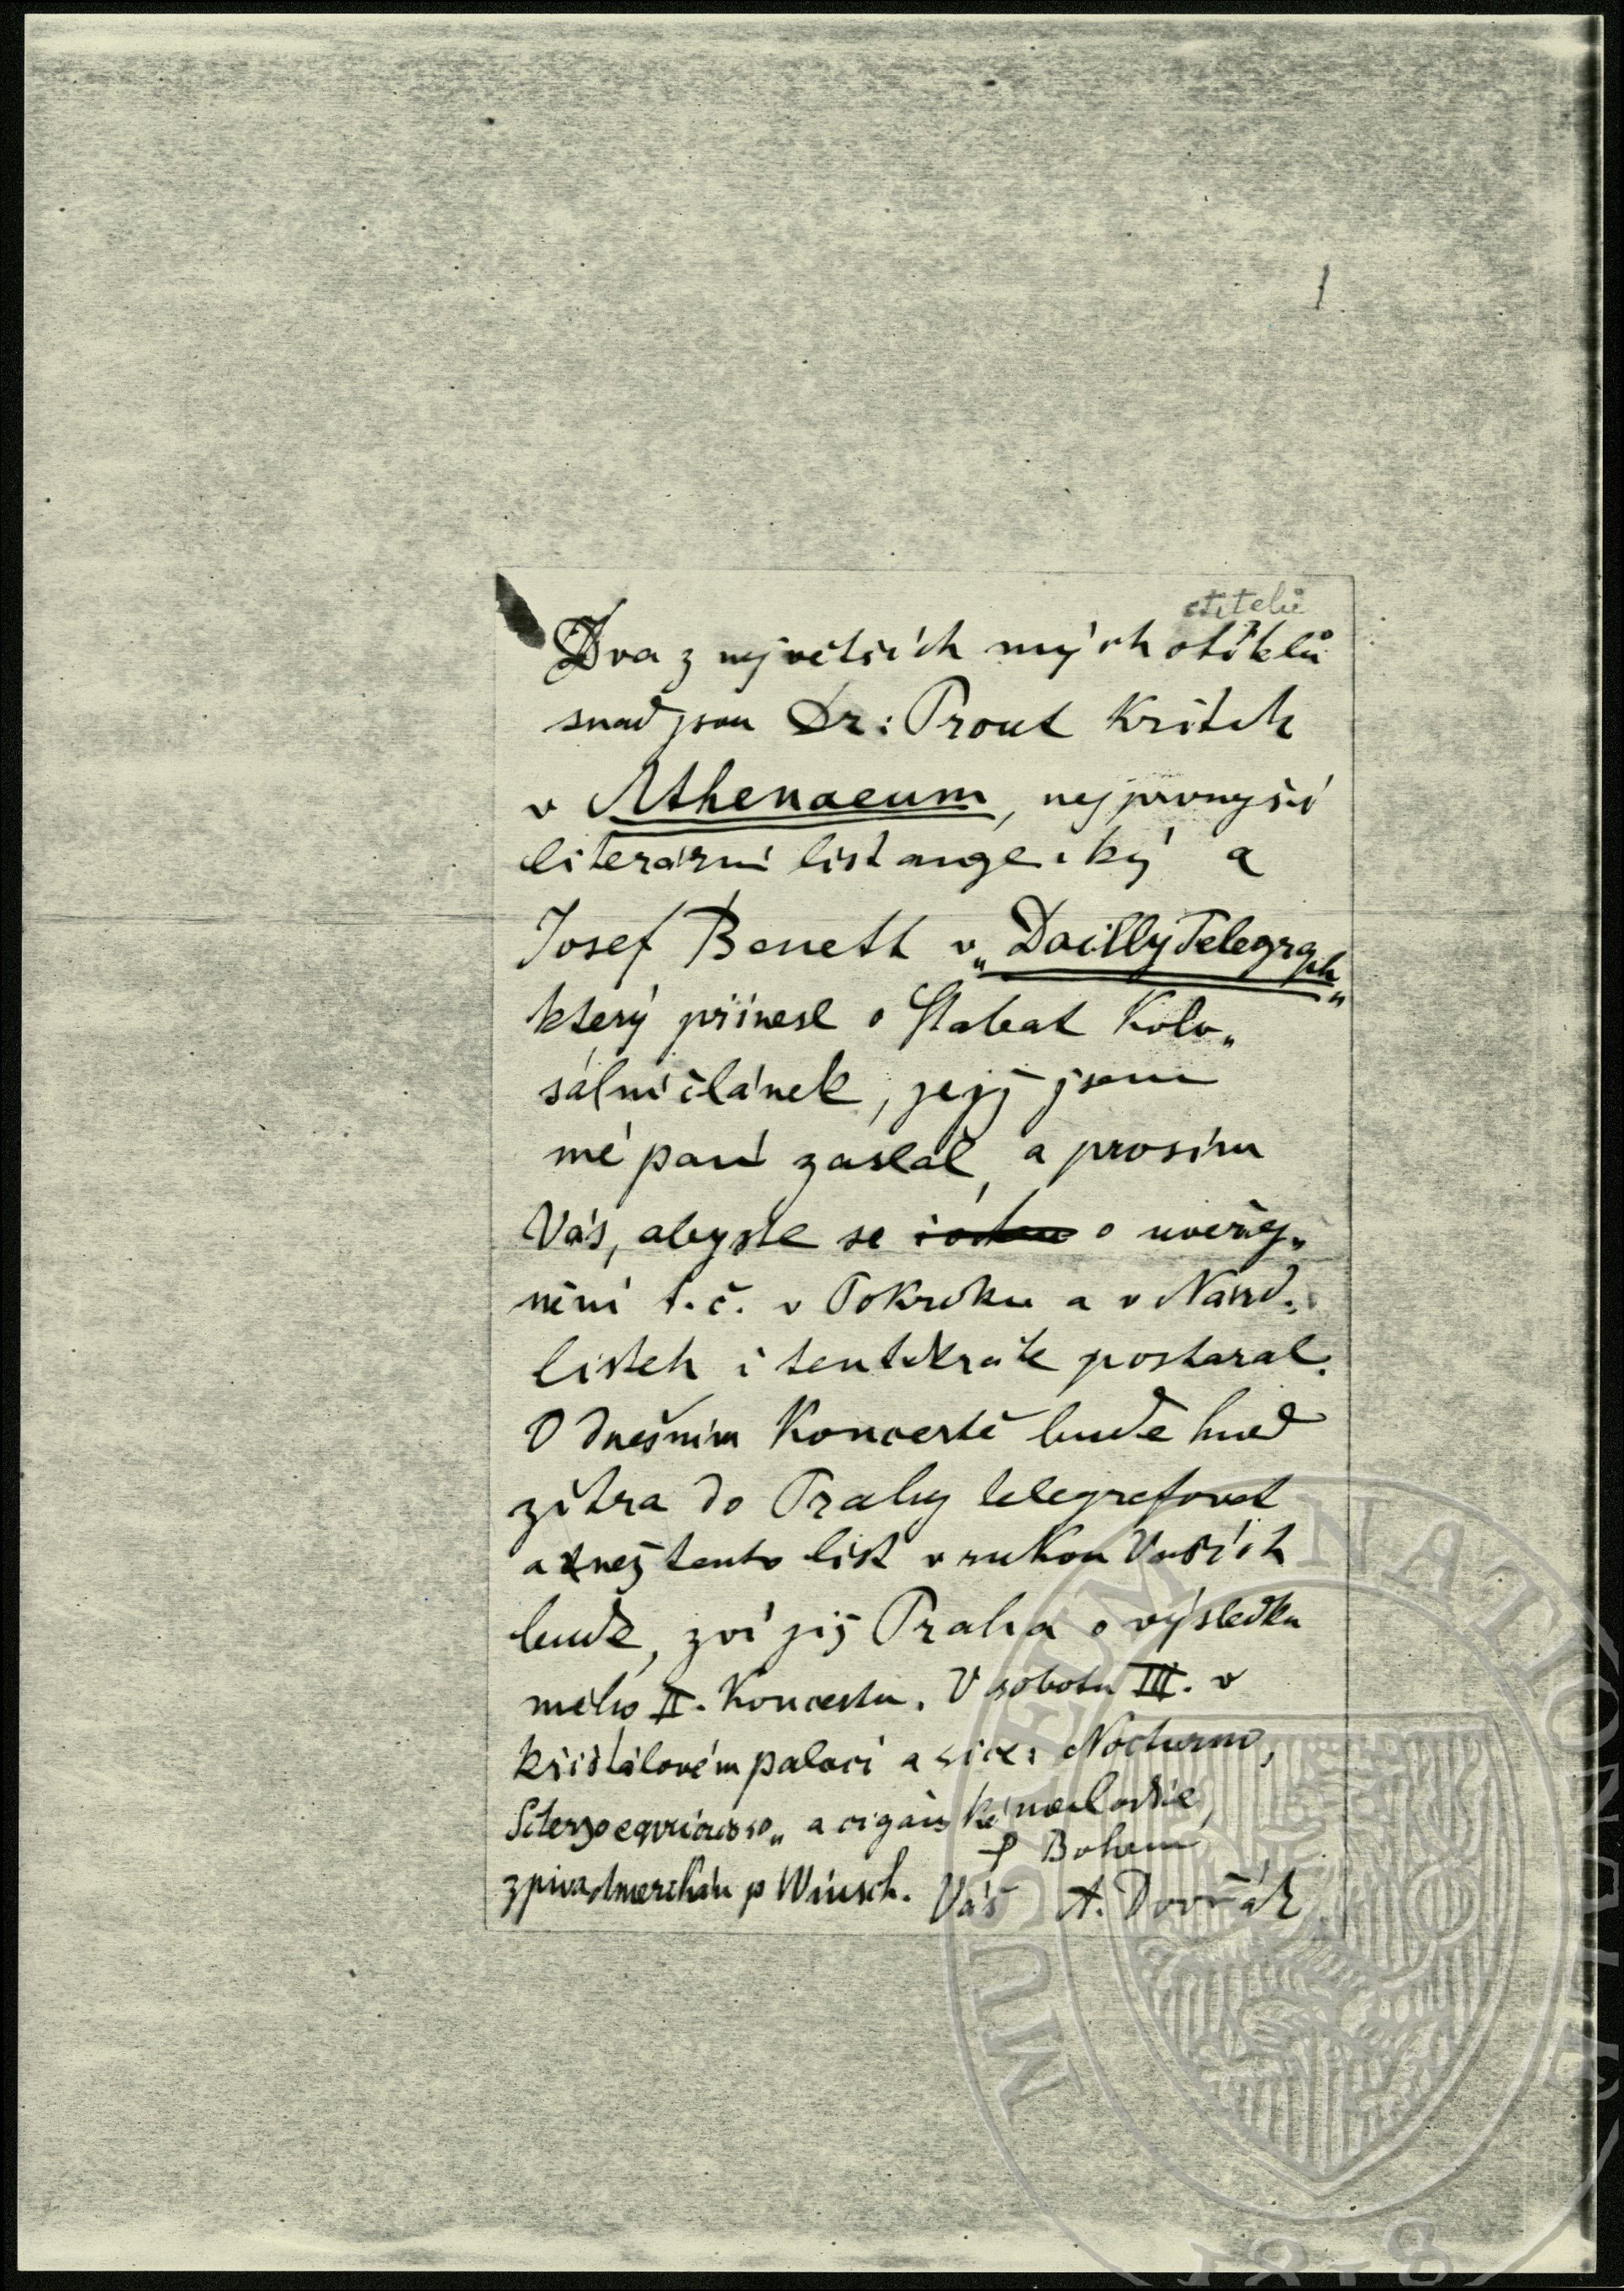 1
ctitelů
Dva z největsích mých ctitelů
snad jsou Dr: Prout Kritik
v Athenaeum, nejprvnější
literární list anglický a
Josef Benett v „Dailly Telegraph„
který přinesl o Stabat Kolo„
sální článek, jejž jsem
mé paní zaslal, a prosím
Vás, abyste se o uveřej„
nění t. č. v Pokroku a v Národ.
listech i tentokráte postaral.
O dnešním Koncertě bude hned
zítra do Prahy telegrafovat
a než tento list v rukou Vašich
bude, zví již Praha o výsledku
mého II. Koncertu. V sobotu III. v
křišťálovém palaci a sice: Nocturno,
Scterzo capricioso„ a cigánské melodie,
zpívá p Winsch. S Bohem
Váš A. Dvořák
MUSEUM NATIONALE
1818